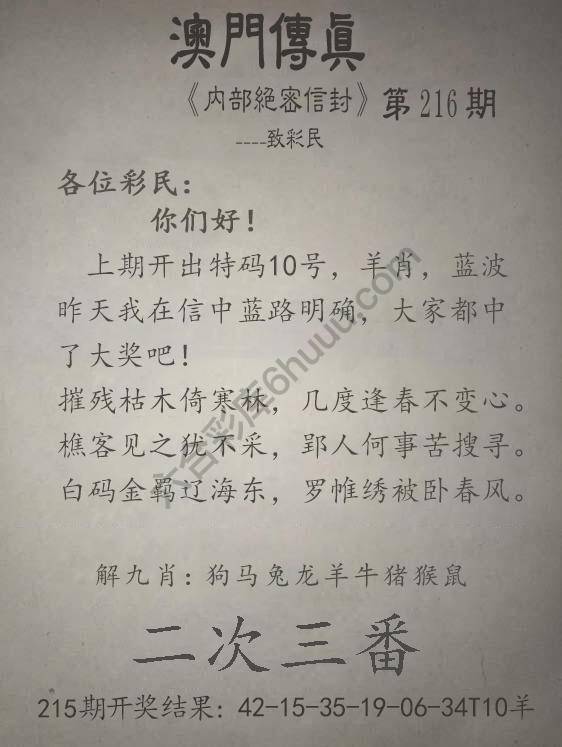 澳門傳真
《内部絕密信封》第216期
----致彩民
各位彩民：
你们好！
上期开出特码10号，羊肖，蓝波
昨天我在信中蓝路明确，大家都中
了大奖吧！
摧残枯木倚寒林，几度逢春不变心。
樵客见之犹不采，郢人何事苦搜寻。
白码金羁辽海东，罗帷绣被卧春风。
解九肖：狗马兔龙羊牛猪猴鼠
二次三番
215期开奖结果：42-15-35-19-06-34T10羊
六合彩库6huuu.com